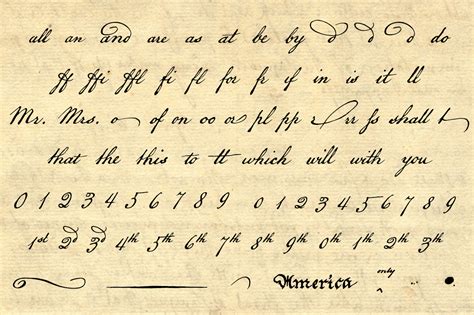 all an and are as at be by d d d do
ff ffi ffl fi fl for fr if in is it ll
Mr. Mrs. o of on oo or pl pp r rr ſs shall t
that the this to tt which will with you
0 1 2 3 4 5 6 7 8 9 0 1 2 3 4 5 6 7 8 9
1st 2d 3d 4th 5th 6th 7th 8th 9th 0th 1th 2th 3th
America only ^